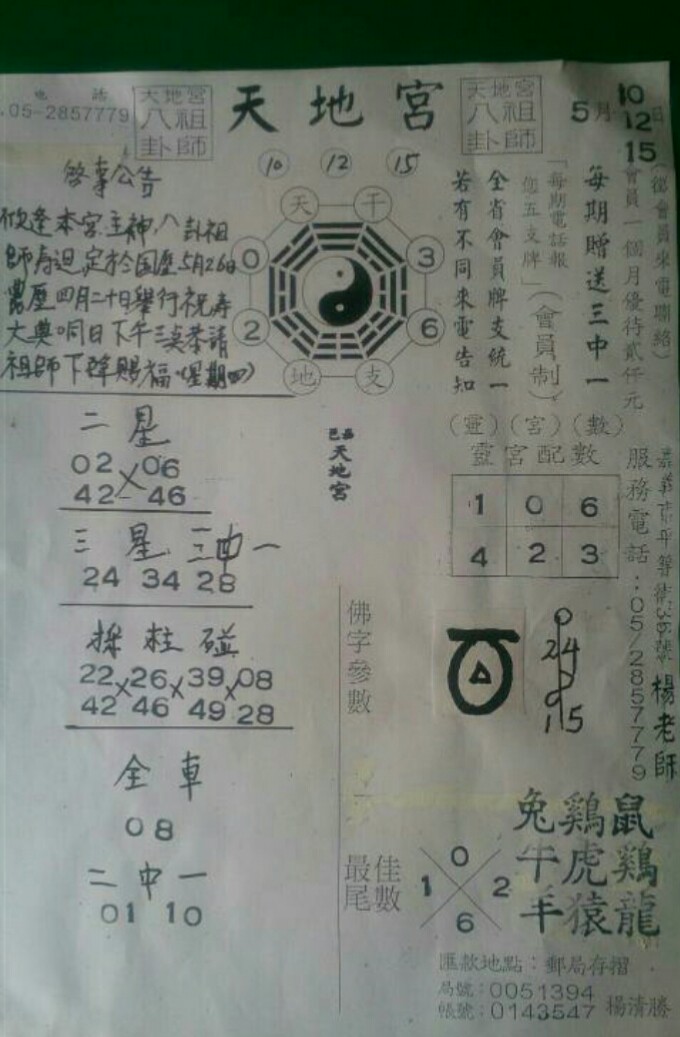 電話
05-2857779
天地宮
八祖
卦師
天地宮
天地宮
八祖
卦師
5月10日
12
15
10 12 15
啓事公告
欣逢本宮主神,八卦祖
師壽廻,定於国曆5月26日
農曆四月二十日舉行祝壽
大典 同日下午三点恭請
祖師下降賜福(星期四)
天 干
0 3
2 6
地 支
(從會員來電聯絡)
會員一個月優待貳仟元
每期贈送三中一
「每期電話報
您五支牌」(會員制)
全省會員牌支統一
若有不同來電告知
二星
02 × 06
42 46
三星、三中一
24 34 28
採柱碰
22 × 26 × 39 × 08
42 46 49 28
全車
08
二中一
01 10
天地宮
(靈)(宮)(數)
靈宮配數
1 0 6
4 2 3
佛字參數
24
15
嘉義市平等街36號 楊老師
服務電話:05/2857779
最佳
尾數
0
1 2
6
兔雞鼠
牛虎雞
羊猿龍
匯款地點:郵局存摺
局號:0051394
帳號:0143547 楊清勝